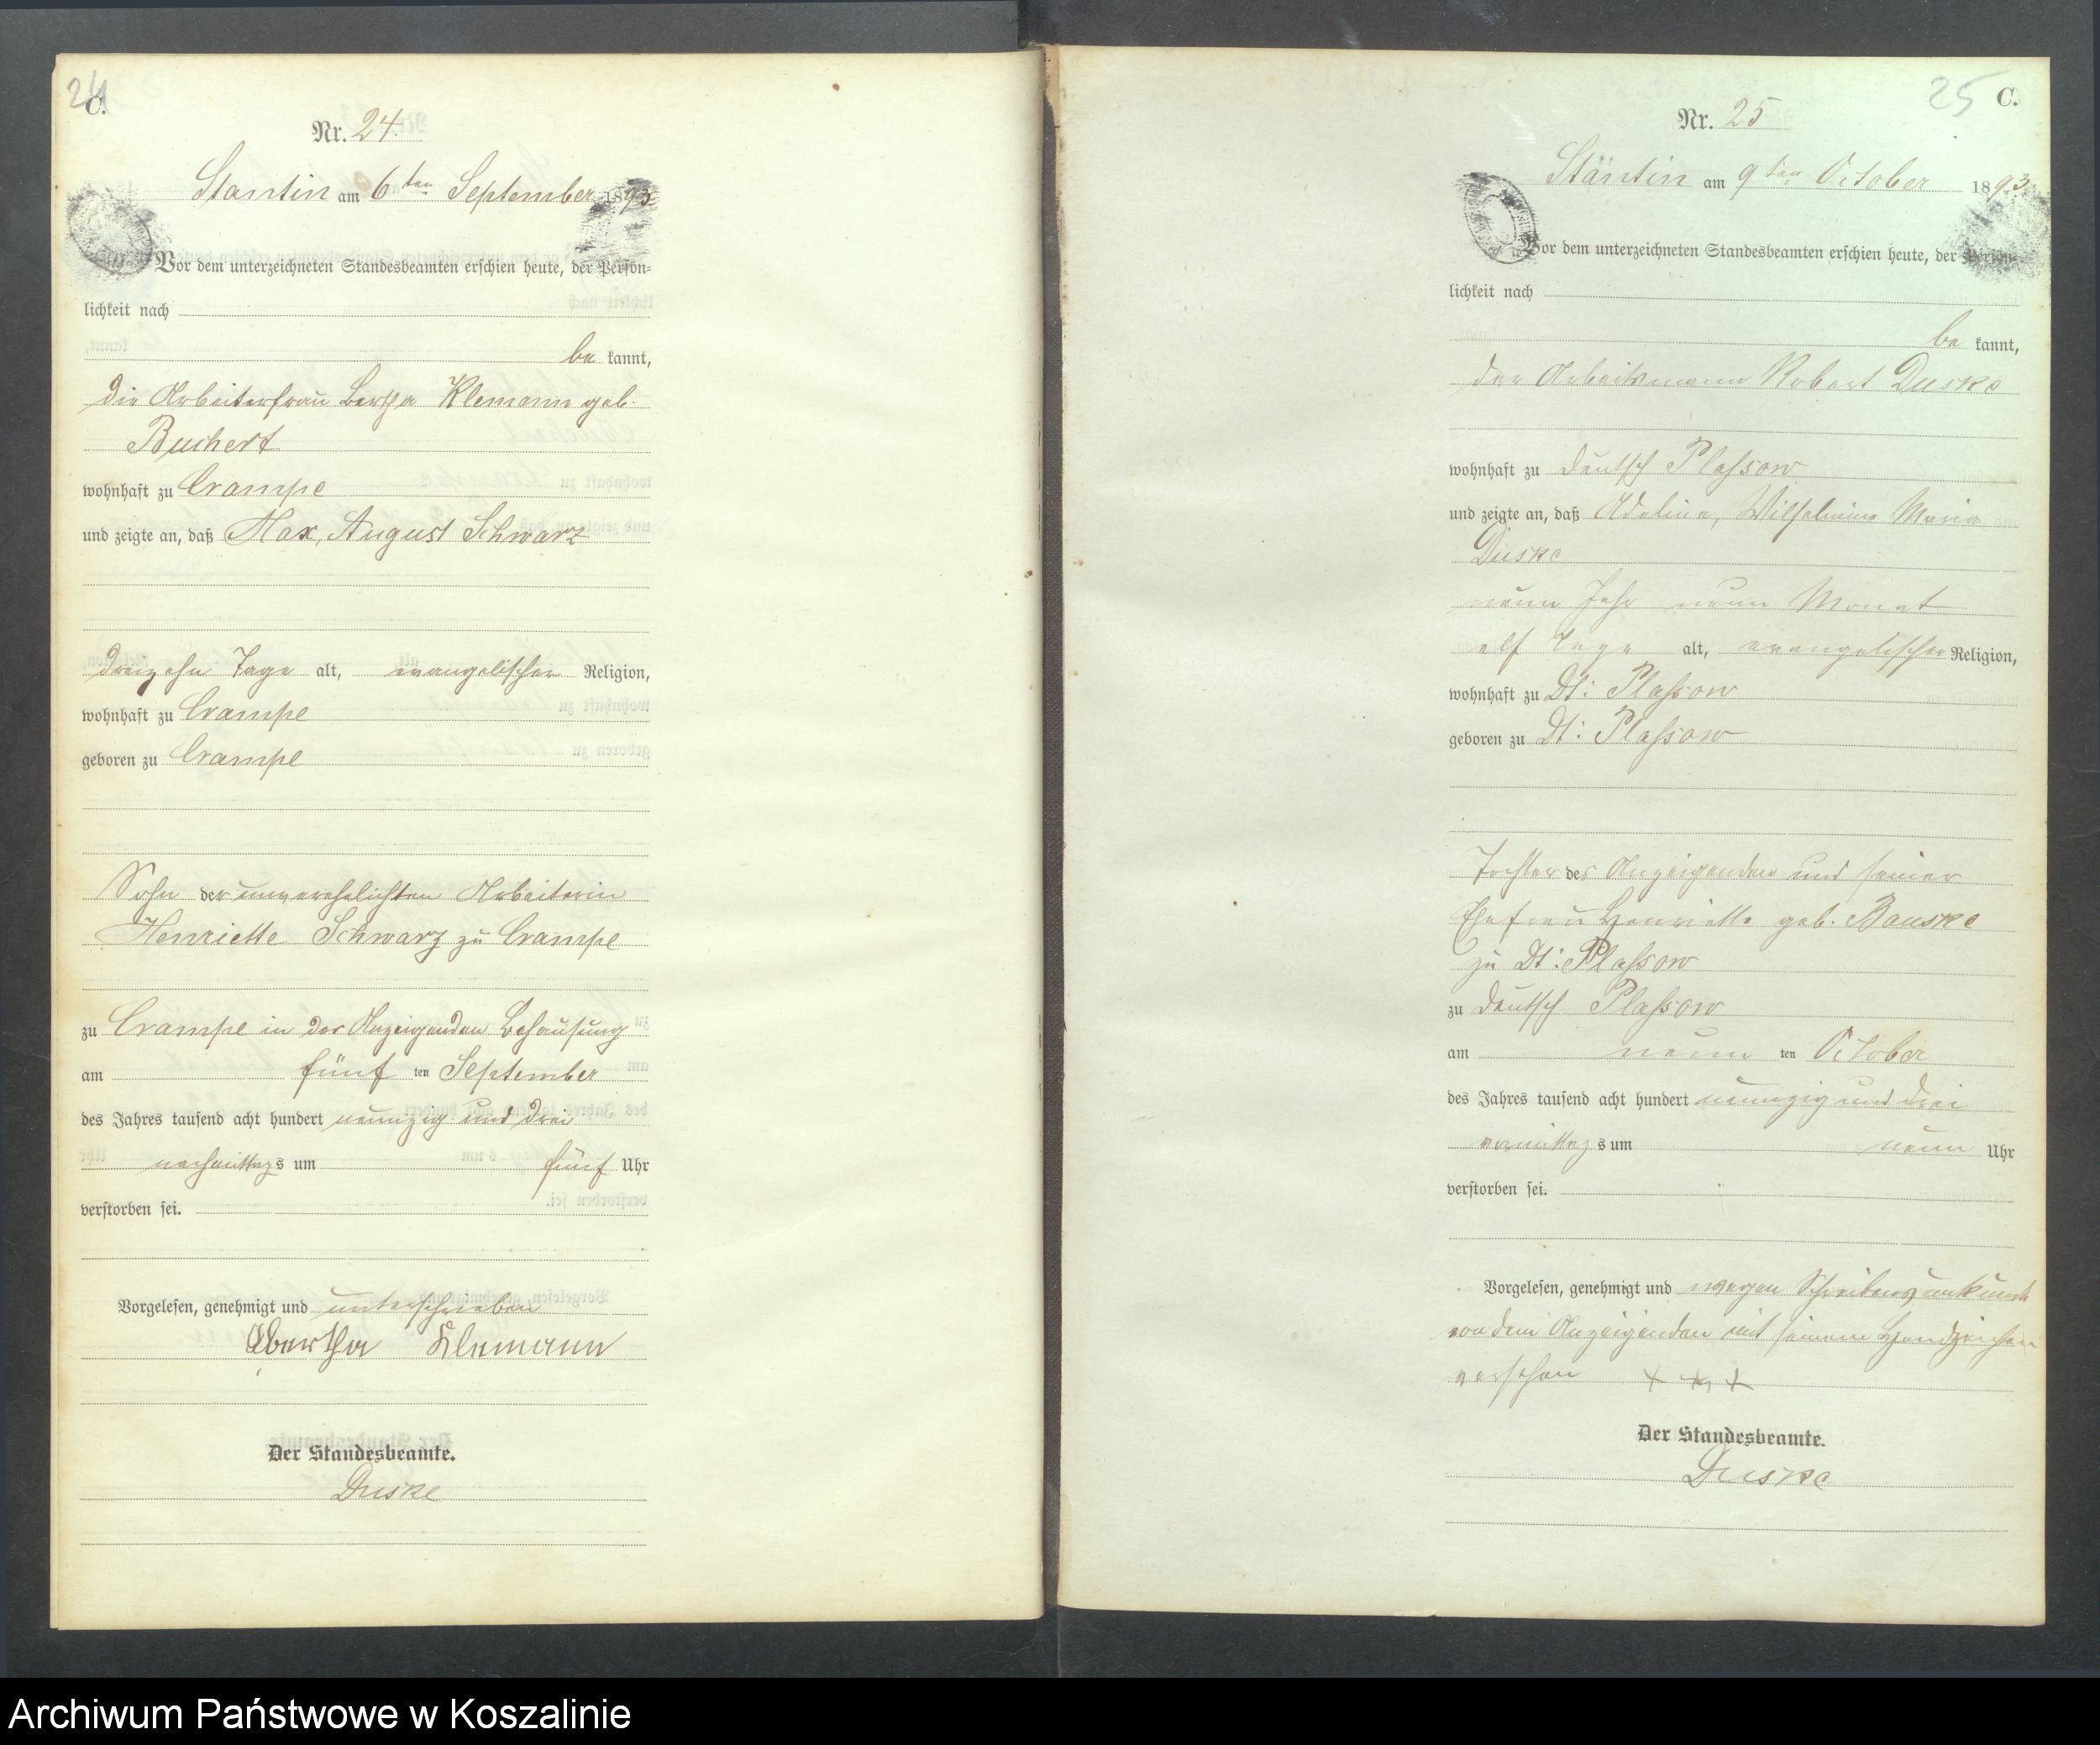 24
C.
Nr. 24.
Stantin am 6ten September 1893
Vor dem unterzeichneten Standesbeamten erschien heute, der Persön=
lichkeit nach
be kannt,
die Arbeiterfrau Bertha Klemann geb.
Buchert
wohnhaft zu Crampe
und zeigte an, daß Max, August Schwarz
dreizehn Tage alt, evangelischer Religion,
wohnhaft zu Crampe
geboren zu Crampe
Sohn der unverehelichten Arbeiterin
Henriette Schwarz zu Crampe
zu Crampe in der Anzeigenden Behausung
am fünf ten September
des Jahres tausend acht hundert neunzig und drei
nachmittags um fünf Uhr
verstorben sei.
Vorgelesen, genehmigt und unterschrieben
Bertha Klemann
Der Standesbeamte.
Duske
25
C.
Nr. 25
Stäntin am 9ten October 1893
Vor dem unterzeichneten Standesbeamten erschien heute, der Persön=
lichkeit nach
be kannt,
der Arbeitsmann Robert Duske
wohnhaft zu Deutsch Plassow
und zeigte an, daß Adeline, Wilhelmine Marie
Duske
neun Jahr neun Monat
elf Tage alt, evangelischer Religion,
wohnhaft zu Dt: Plassow
geboren zu Dt: Plassow
Tochter des Anzeigenden und seiner
Ehefrau Henriette geb. Bauske
zu Dt: Plassow
zu Deutsch Plassow
am neun ten October
des Jahres tausend acht hundert neunzig und drei
vormittags um neun Uhr
verstorben sei.
Vorgelesen, genehmigt und wegen Schreibensunkunde
von dem Anzeigenden mit seinem Handzeichen
versehen + + +
Der Standesbeamte.
Duske
Archiwum Państwowe w Koszalinie